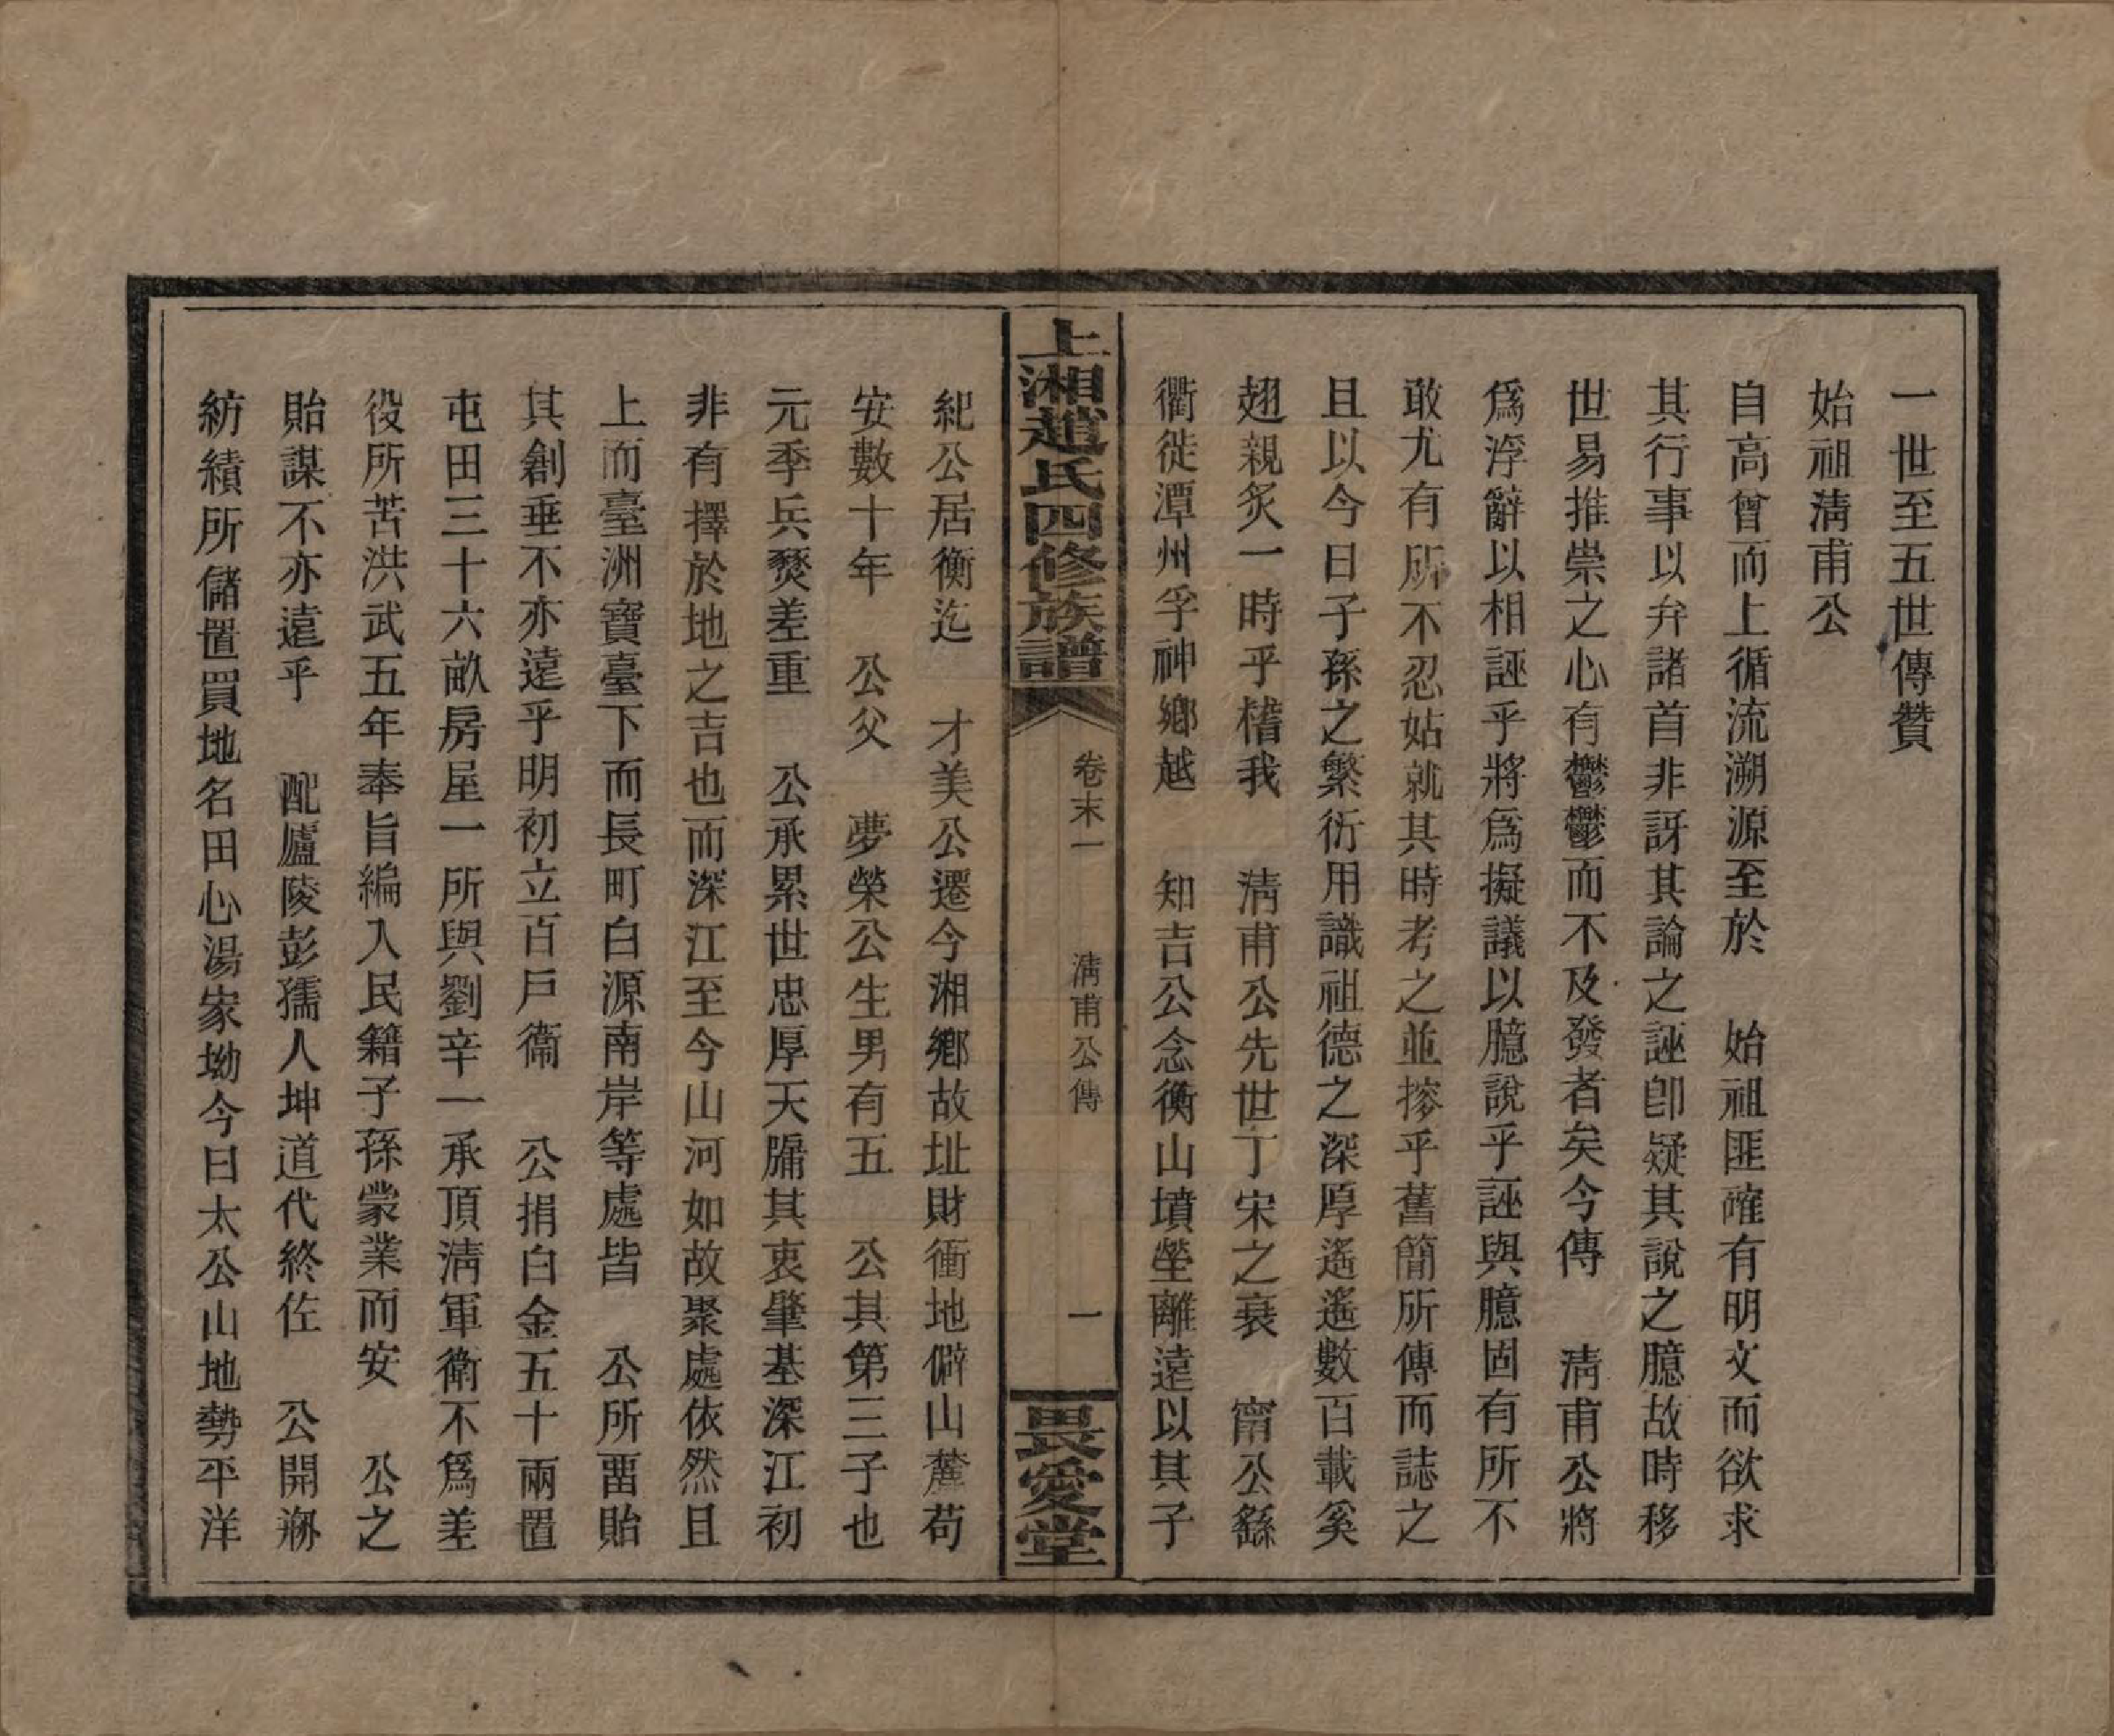 一世至五世傳贊
始祖淸甫公
自高曾而上循流溯源至於　始祖匪確有明文而欲求
其行事以弁諸首非訝其論之誣卽疑其說之臆故時移
世易推崇之心有鬱鬱而不及發者矣今傳　淸甫公將
爲浮辭以相誣乎將爲擬議以臆說乎誣與臆固有所不
敢尤有所不忍姑就其時考之並摉乎舊簡所傳而誌之
且以今日子孫之繁衍用識祖德之深厚遙遙數百載奚
翅親炙一時乎稽我　淸甫公先世丁宋之衰　甯公繇
衢徙潭州孚神鄕越　知吉公念衡山墳塋離遠以其子
上湘趙氏四修族譜
卷末一
淸甫公傳
一
畏愛堂
紀公居衡迄　才美公遷今湘鄕故址財衝地僻山麓苟
安數十年　公父　夢榮公生男有五　公其第三子也
元季兵燹差重　公承累世忠厚天牖其衷肇基深江初
非有擇於地之吉也而深江至今山河如故聚處依然且
上而臺洲寶臺下而長町白源南岸等處皆　公所畱貽
其創垂不亦遠乎明初立百戶衞　公捐白金五十兩置
屯田三十六畝房屋一所與劉辛一承頂淸軍衛不爲差
役所苦洪武五年奉旨編入民籍子孫蒙業而安　公之
貽謀不亦遠乎　配廬陵彭孺人坤道代終佐　公開
紡績所儲置買地名田心湯家坳今曰太公山地勢平洋